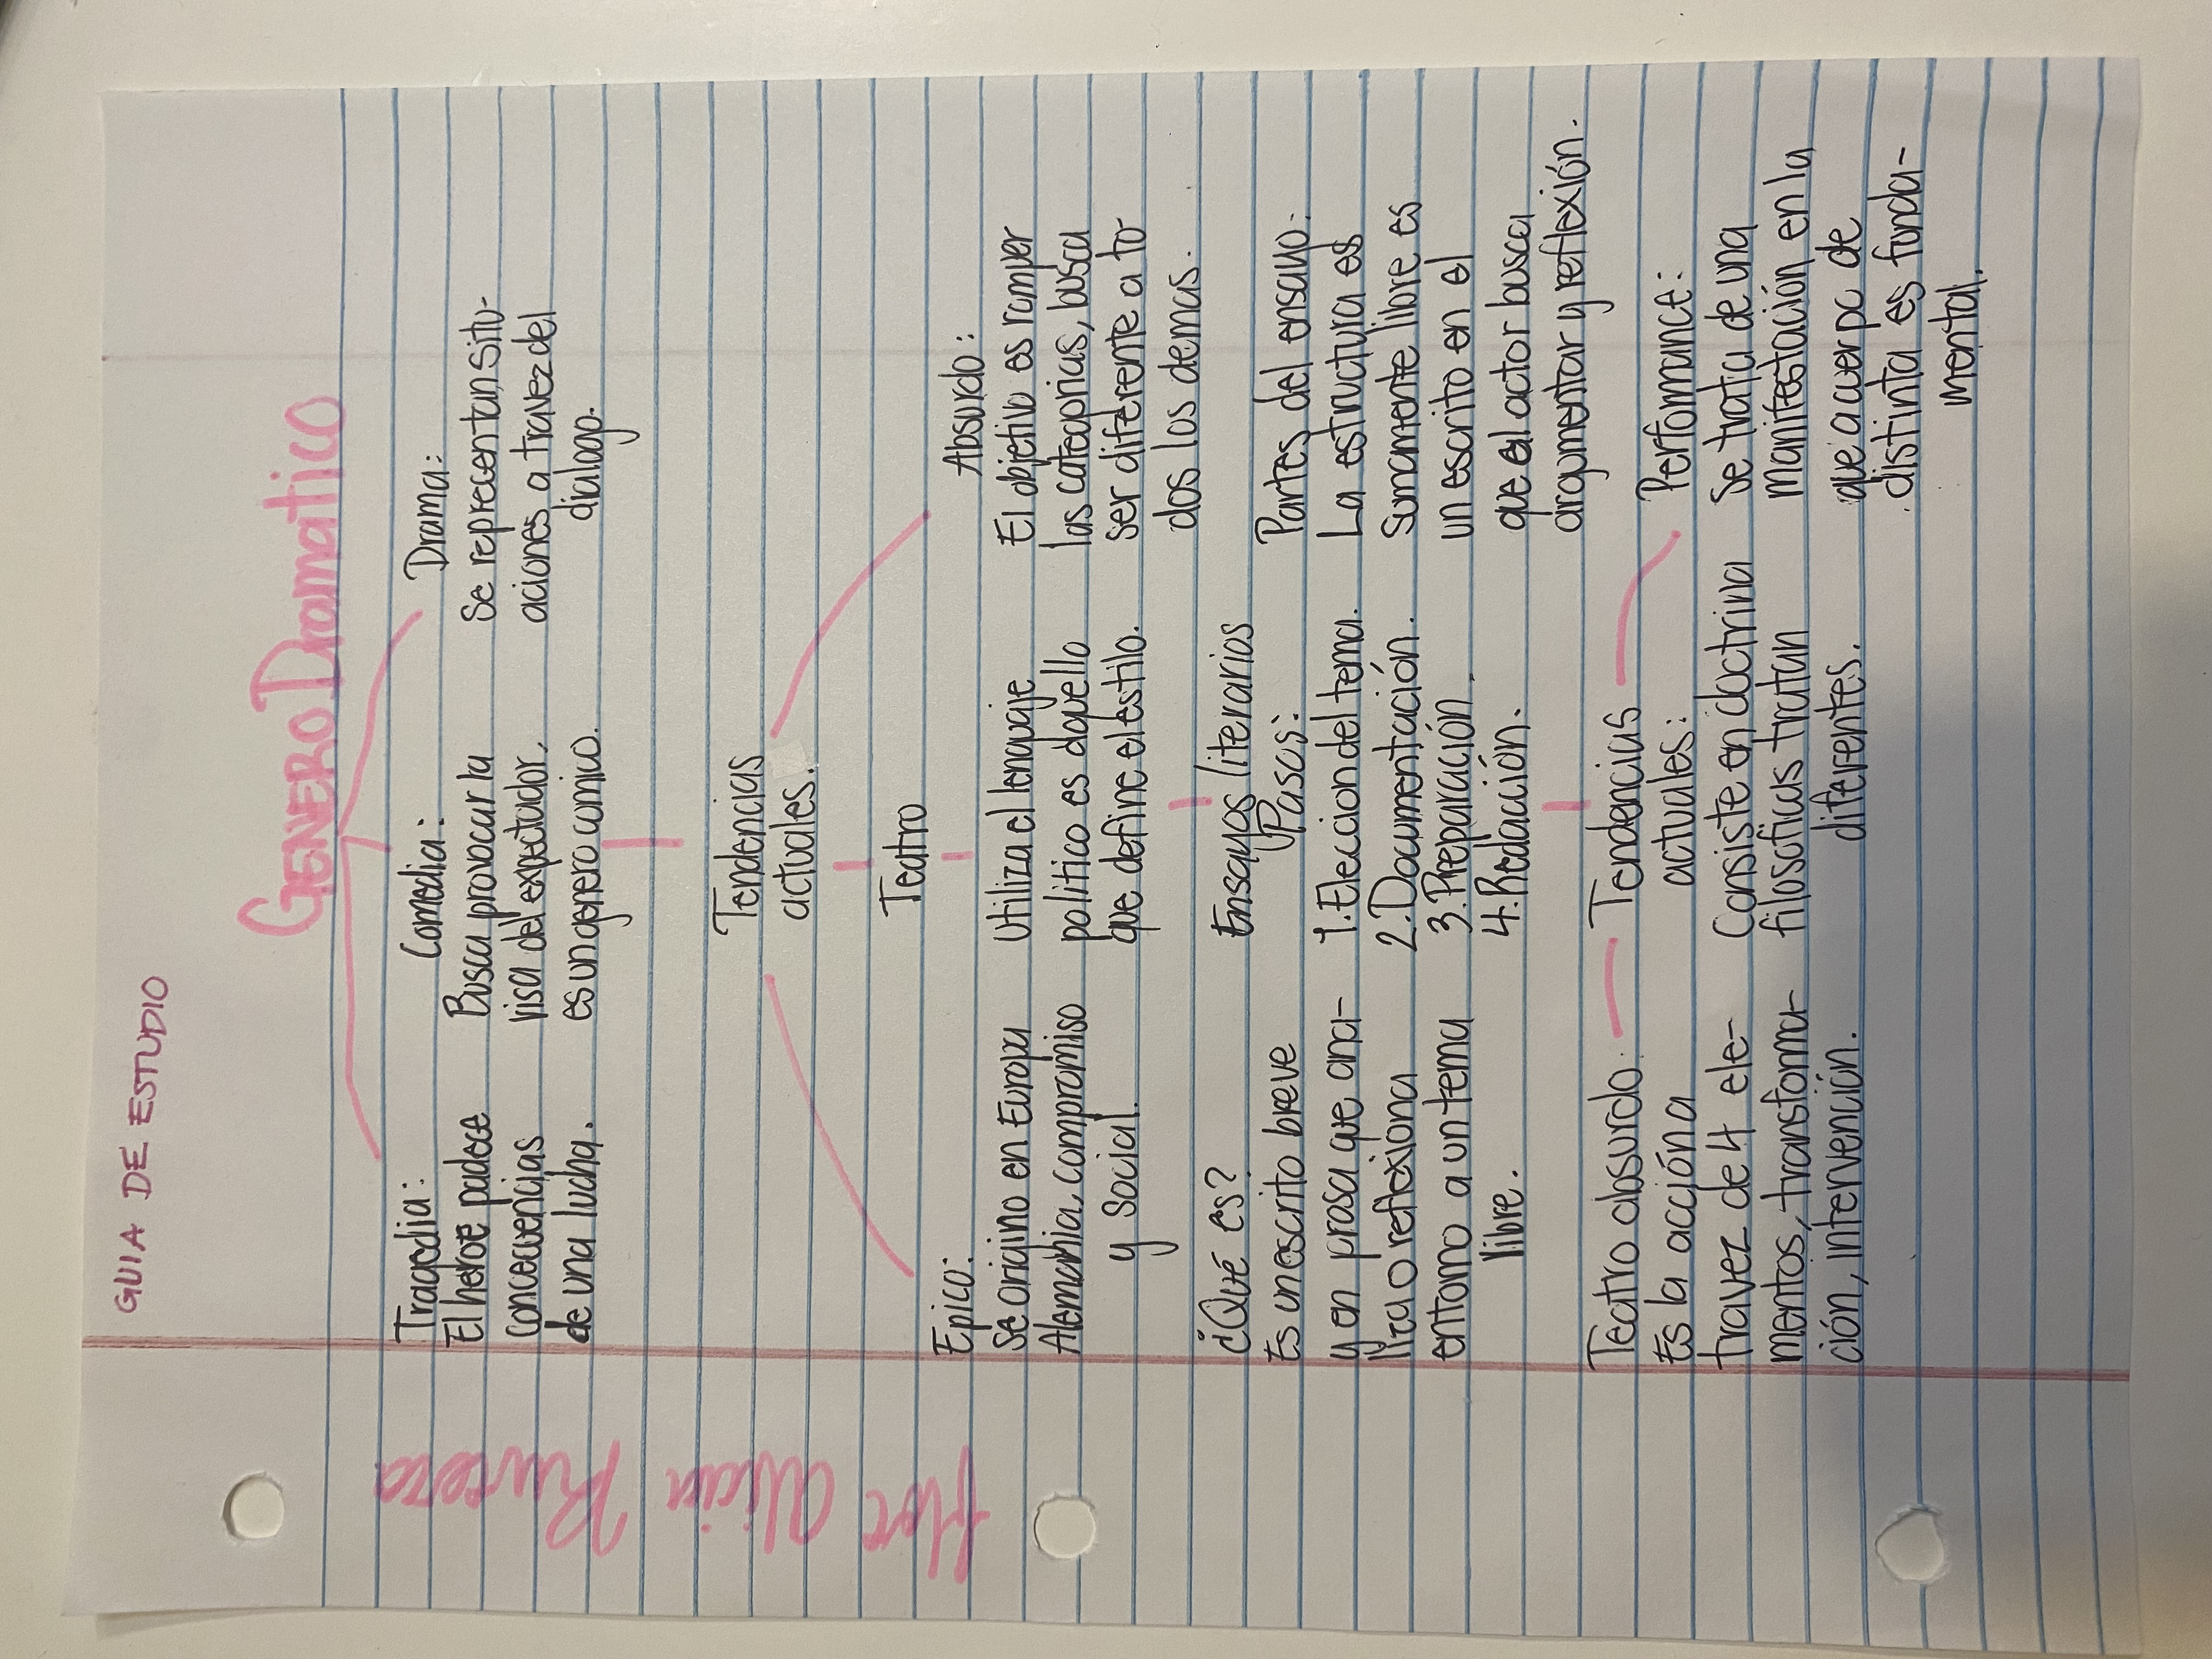 GUIA DE ESTUDIO
GENERO Dramatico
Tragedia:
El heroe padece
concecuencias
de una lucha.
Comedia:
Busca provocar la
risa del expectador,
es un genero comico.
Drama:
Se reprecentan situ-
aciones a travez del
dialogo.
Tendencias
actuales.
Teatro
Epico:
Se origino en Europa
Alemania, compromiso
y social.
Utiliza el lenguaje
politico es aquello
que define el estilo.
Absurdo:
El objetivo es romper
las categorias, busca
ser diferente a to
dos los demas.
¿Qué es?
Es un escrito breve
y en prosa que ana-
liza o reflexiona
entorno a un tema
libre.
Ensayos literarios
Pasos:
1. Eleccion del tema.
2. Documentación.
3. Preparación
4. Redacción.
Partes del ensayo:
La estructura es
sumamente libre es
un escrito en el
que el actor busca
argumentar y reflexión.
Teatro absurdo
Es la acción a
travez de 4 ele-
mentos, transforma-
ción, intervención.
Tendencias
actuales:
Consiste en doctrina
filosoficas tratan
diferentes.
Perfomance:
Se trata de una
manifestación en la
que a cuerpo de
distinta es funda-
mental.
flor alicia